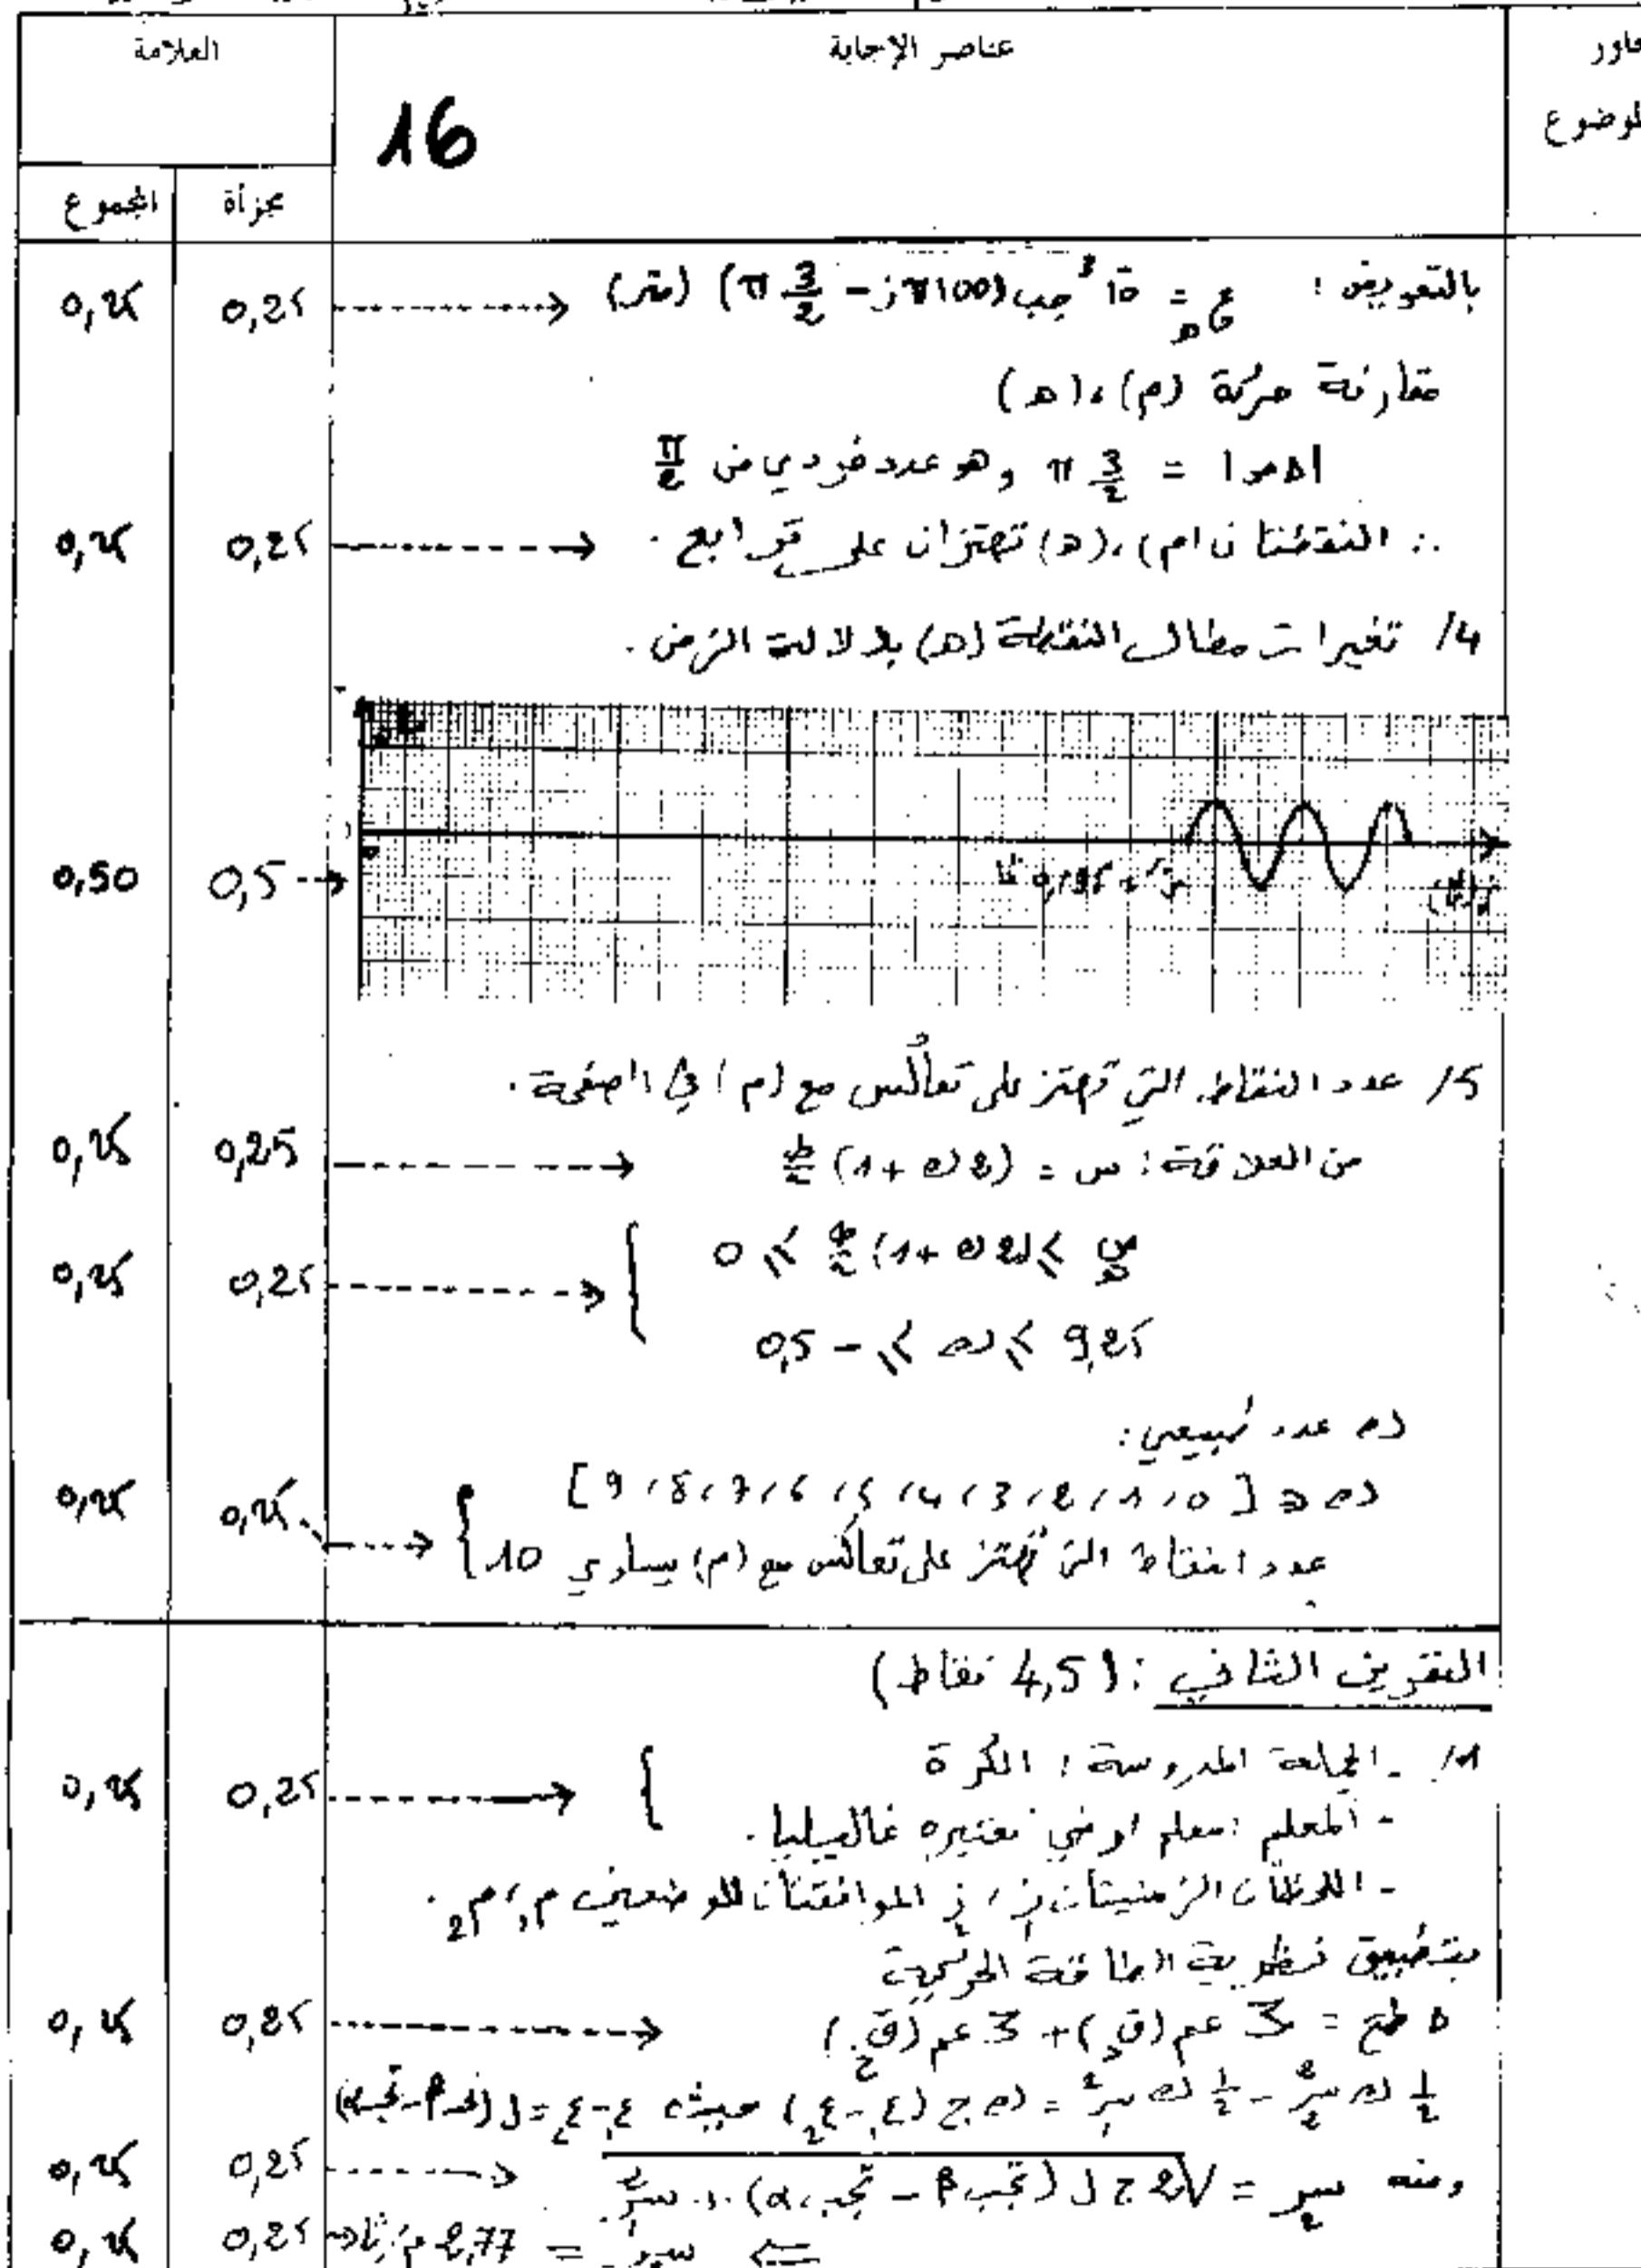 العلامة
عناصر الإجابة
محاور الموضوع
16
المجموع
مجزأة
بالتعويض : ع هـ = 10⁻³ جب (100πز - 3/2 π) (متر)
0,25 0,25
مقارنة حركة (م)، (هـ)
|Δص| = 3/2 π وهو عدد فردي من π/2
∴ النقطتان (م)، (هـ) تهتزان على ترابع .
0,25 0,25
4/ تغيرات مطال النقطة (هـ) بدلالة الزمن .
0,50 0,5
0,195 ثا
5/ عدد النقاط التي تهتز على تعاكس مع (م) في الصفحة .
من العلاقة : س = (2ن + 1) ط/2
0,25 0,25
0 ≤ (2ن + 1) ط/2 ≤ س هـ
0,25 0,25
-0,5 ≤ ن ≤ 9,25
ن عدد طبيعي :
ن ∈ [0، 1، 2، 3، 4، 5، 6، 7، 8، 9]
عدد النقاط التي تهتز على تعاكس مع (م) يساوي 10
0,25 0,25
التمرين الثاني : (4,5 نقاط)
1/ - الجملة المدروسة : الكرة
- المعلم : معلم أرضي نعتبره غاليليا .
0,25 0,25
- اللحظتان الزمنيتان ز₁، ز₂ الموافقتان للوضعين م₁، م₂ .
بتطبيق نظرية الطاقة الحركية
Δ طح = Σ عم (ق د) + Σ عم (ق خ)
0,25 0,25
1/2 ك سر₂² - 1/2 ك سر₁² = ك ج (ع₁ - ع₂) حيث ع₁ - ع₂ = ل (تجب β - تجب α)
ومنه سر₂ = √2 ج ل (تجب β - تجب α) + سر₁²
0,25 0,25
⇐ سر₂ = 2,77 م/ثا
0,25 0,25